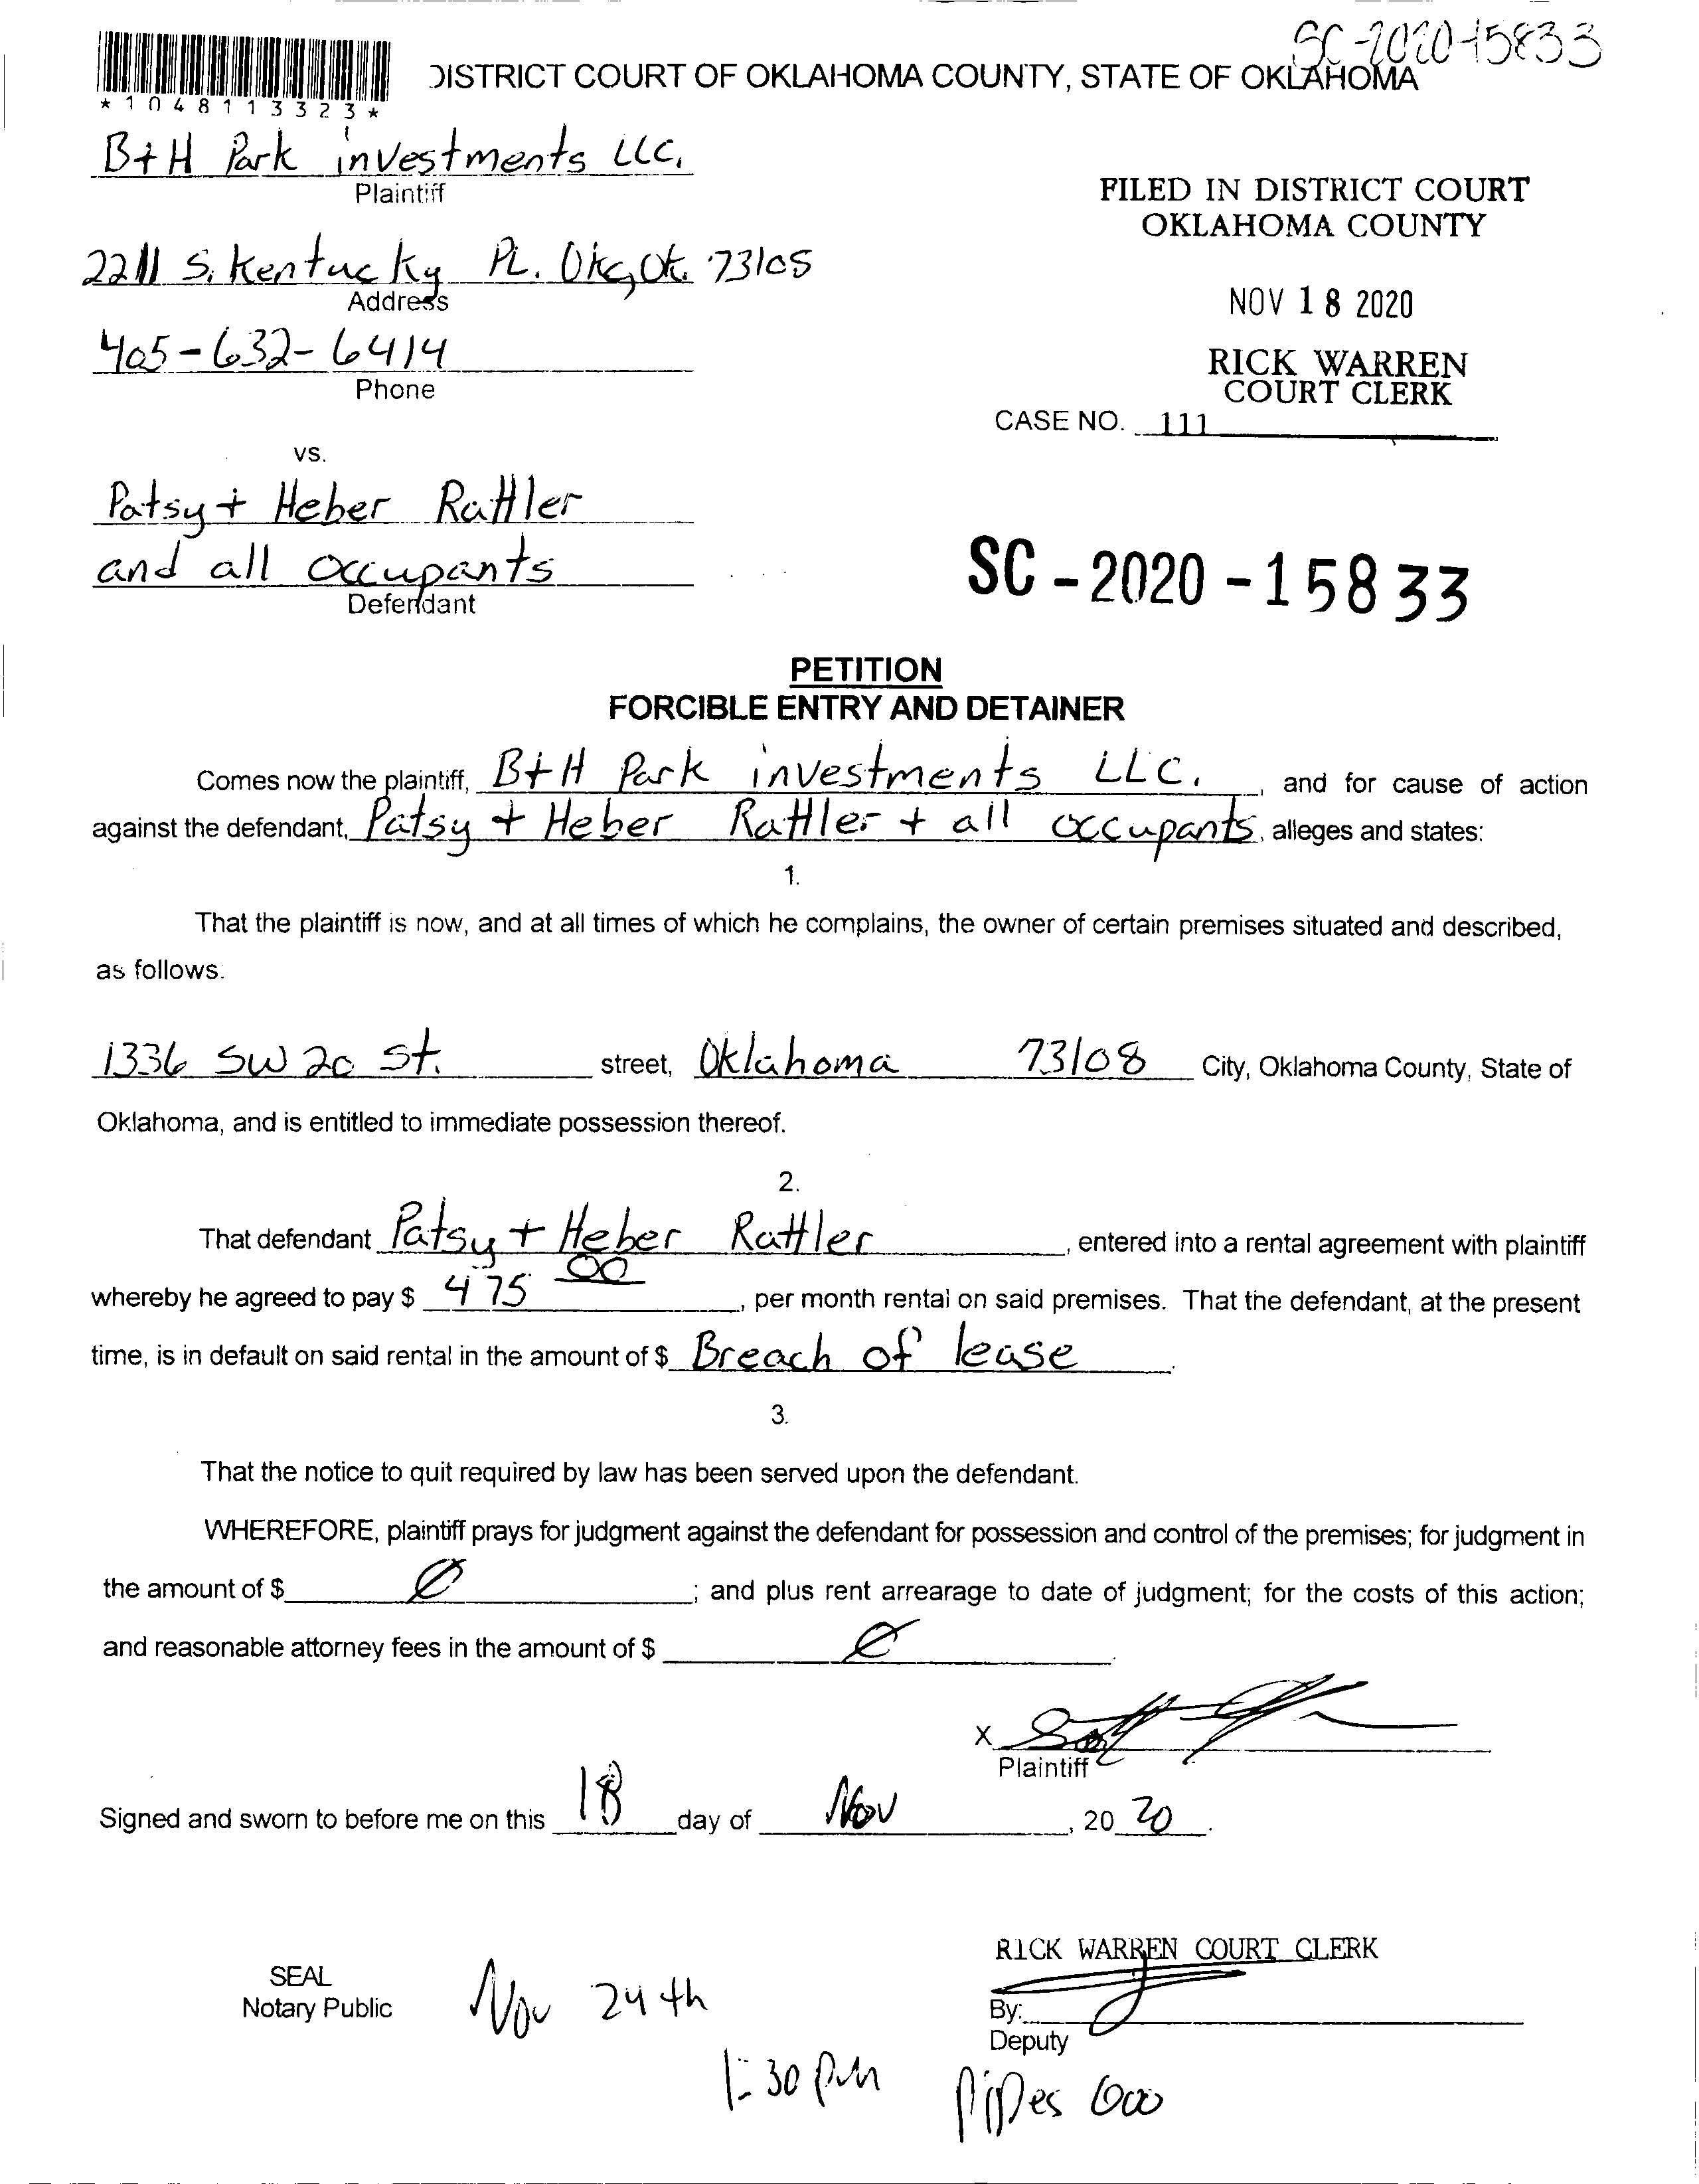 SC-2020-15833
DISTRICT COURT OF OKLAHOMA COUNTY, STATE OF OKLAHOMA
*1048113323*
B+H Park investments LLC.
Plaintiff
FILED IN DISTRICT COURT
OKLAHOMA COUNTY
2211 S. Kentucky PL. Okc, Ok. 73105
Address
NOV 18 2020
405-632-6414
Phone
RICK WARREN
COURT CLERK
CASE NO. 111
vs.
Patsy + Heber Rattler
and all occupants
Defendant
SC-2020-15833
PETITION
FORCIBLE ENTRY AND DETAINER
Comes now the plaintiff, B+H Park investments LLC., and for cause of action
against the defendant, Patsy + Heber Rattler + all occupants, alleges and states:
1.
That the plaintiff is now, and at all times of which he complains, the owner of certain premises situated and described,
as follows:
1336 SW 20 St. street, Oklahoma 73108 City, Oklahoma County, State of
Oklahoma, and is entitled to immediate possession thereof.
2.
That defendant Patsy + Heber Rattler, entered into a rental agreement with plaintiff
whereby he agreed to pay $ 475 00, per month rental on said premises. That the defendant, at the present
time, is in default on said rental in the amount of $ Breach of lease.
3.
That the notice to quit required by law has been served upon the defendant.
WHEREFORE, plaintiff prays for judgment against the defendant for possession and control of the premises; for judgment in
the amount of $ 0; and plus rent arrearage to date of judgment; for the costs of this action;
and reasonable attorney fees in the amount of $ 0.
X
Plaintiff
Signed and sworn to before me on this 18 day of Nov, 20 20.
RICK WARREN COURT CLERK
SEAL
Notary Public
Nov 24th
By:
Deputy
1:30 pm